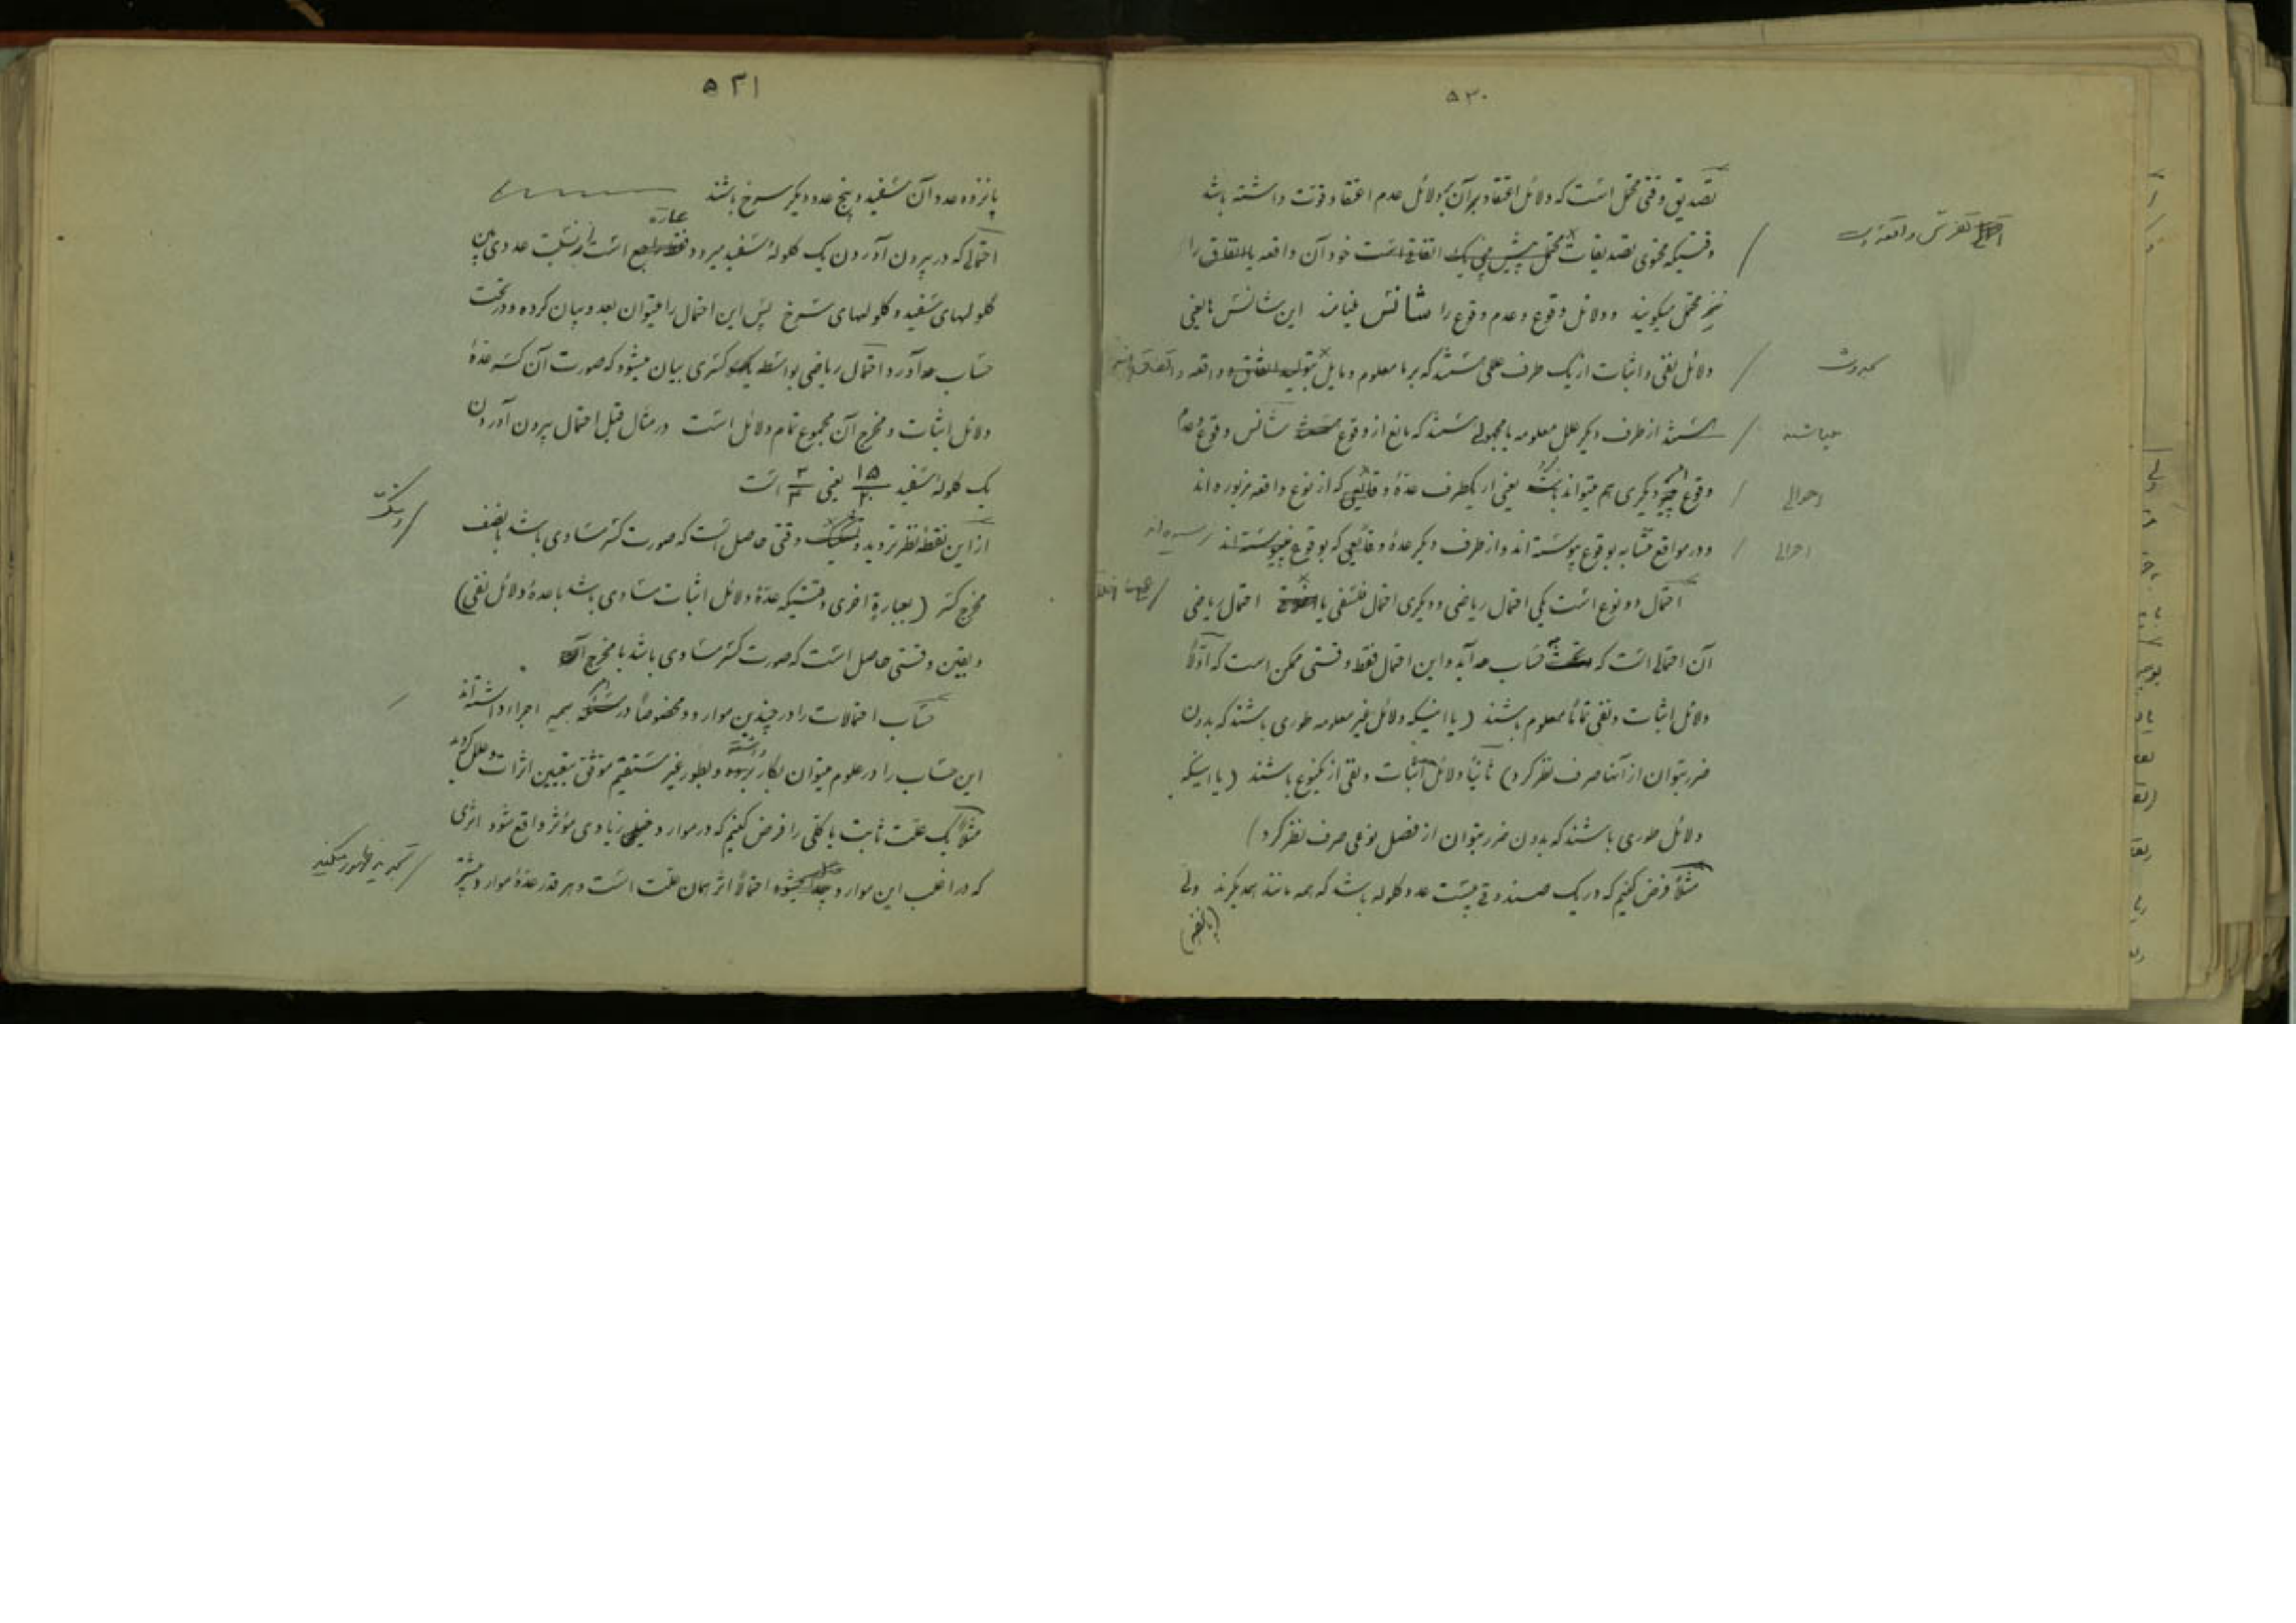 ۵۳۰
تصدیق وقتی محتمل است که دلائل اعتقاد بر آن بر دلائل عدم اعتقاد قوت داشته باشد
وقتیکه محتوی تصدیقات محتمل پیش بینی یک اتفاقی است خود آن واقعه یا اتفاق را
نیز محتمل میگویند و دلائل وقوع و عدم وقوع را شانس مینامند این شانس ها یعنی
دلائل نفی و اثبات از یک طرف عللی هستند که بر ما معلوم و مایل بتولید اتفاق و واقعه
هستند از طرف دیگر علل معلومه یا مجهولی هستند که مانع از وقوع شانس وقوع و عدم
وقوع چیز دیگری هم میتواند باشد یعنی از یکطرف عدهٔ وقایعی که از نوع واقعه مزبور بوده اند
و در مواقع مشابه بوقوع پیوسته اند و از طرف دیگر عدهٔ وقایعی که بوقوع نپیوسته اند
احتمال دو نوع است یکی احتمال ریاضی و دیگری احتمال فلسفی یا احتمال ریاضی
آن احتمالی است که بحساب مه آید و این احتمال فقط وقتی ممکن است که اولاً
دلائل اثبات و نفی تماماً معلوم باشند (یا اینکه دلائل غیر معلومه طوری باشند که بدون
ضرر بتوان از آنها صرف نظر کرد) ثانیاً دلائل اثبات و نفی از یکنوع باشند (یا اینکه
دلائل طوری باشند که بدون ضرر بتوان از فصل نوعی صرف نظر کرد)
مثلاً فرض کنیم که در یک صندوقی بیست عدد گلوله باشد که همه مانند همدیگرند ولی
احوالی
احوالی
۵۳۱
پانزده عدد آن سفید و پنج عدد دیگر سرخ باشند
احتمالی که در بیرون آوردن یک گلولهٔ سفید میرود فقط راجع است به نسبت عددی بین
گلولهای سفید و گلولهای سرخ پس این احتمال را میتوان بعدد بیان کرده و در تحت
حساب مه آورد احتمال ریاضی بواسطه یک کسری بیان میشود که صورت آن کسر عدهٔ
دلائل اثبات و مخرج آن مجموع تمام دلائل است در مثال قبل احتمال بیرون آوردن
یک گلولهٔ سفید ۱۵/۲۰ یعنی ۳/۴ است
از این نقطه نظر تردید وقتی حاصل است که صورت کسر مساوی باشد بانصف
مخرج کسر (بعبارة اخری وقتیکه عدهٔ دلائل اثبات مساوی باشد با عدهٔ دلائل نفی)
و یقین وقتی حاصل است که صورت کسر مساوی باشد با مخرج آن
حساب احتمالات را در چندین موارد و مخصوصاً در بیمه اجرا داشته اند
این حساب را در علوم میتوان بکار برده و بطور غیر مستقیم موفق بتعیین اثرات و علل گردید
مثلاً یک علت ثابت یا کلی را فرض کنیم که در موارد خیلی زیادی مؤثر واقع شود اثری
که در اغلب این موارد احتمالاً اثر همان علت است و هر قدر عدهٔ موارد بیشتر